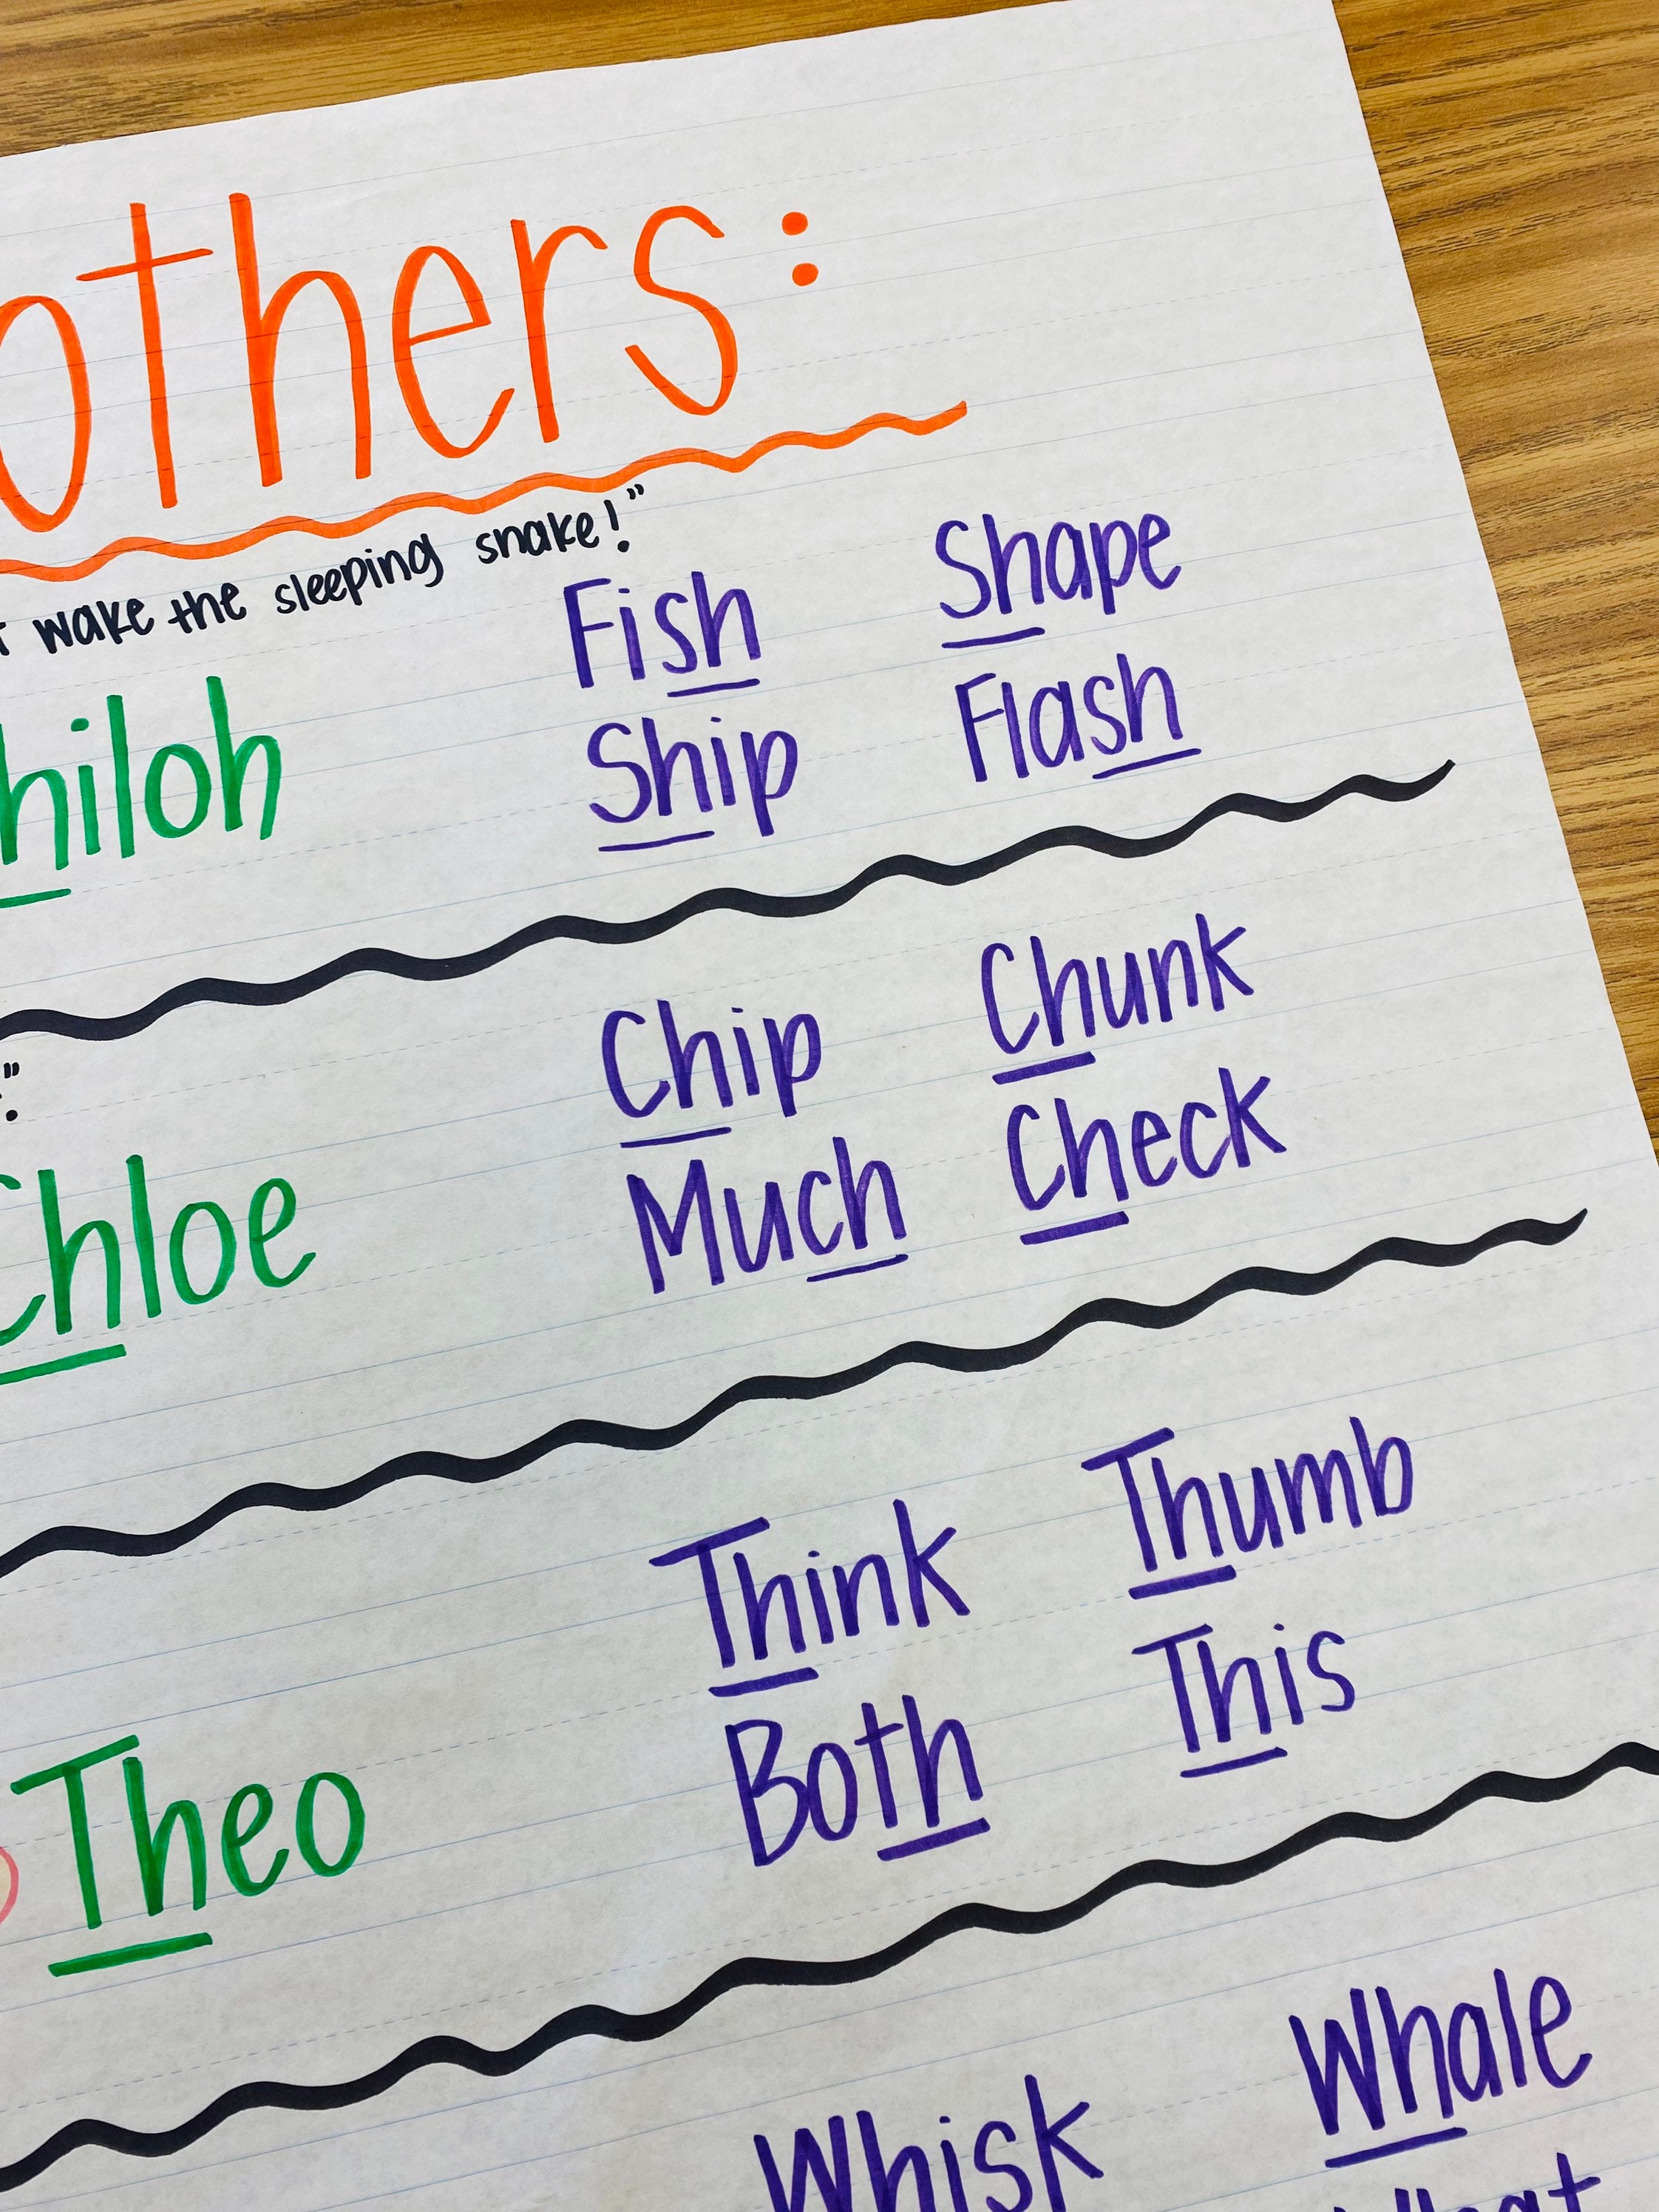 others:
wake the sleeping snake!"
Fish Shape
hiloh
Ship Flash
Chip Chunk
Chloe
Much Check
Think Thumb
Theo
Both This
Whisk Whale